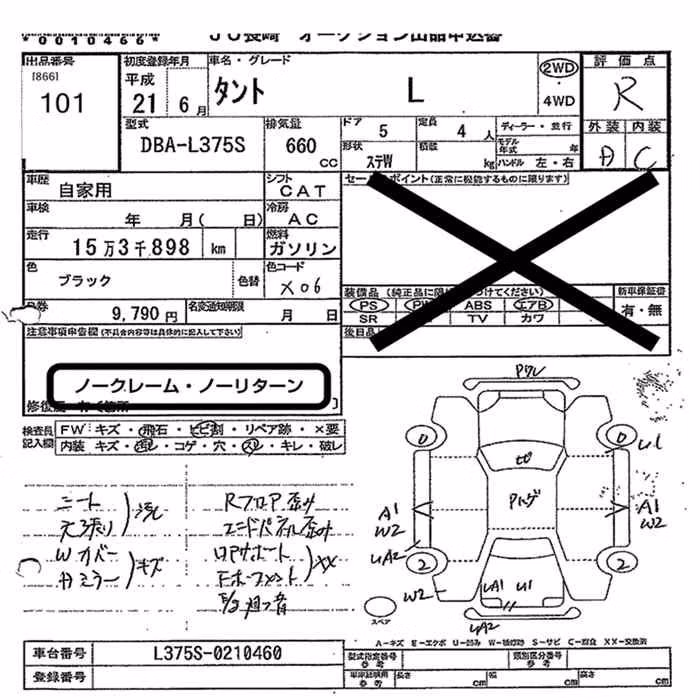 *0010466* JU長崎 オークション出品申込書
出品番号 [866] 101
初度登録年月 平成 21 6月
車名・グレード タント L
2WD ・ 4WD
評価点 R
型式 DBA-L375S
排気量 660 cc
ドア 5
定員 4 人
ディーラー・並行
モデル年式 年
形状 ステW
積載 kg
ハンドル 左・右
外装 内装
A C
車歴 自家用
シフト CAT
セールスポイント(正常に機能するものに限ります)
車検 年 月( 日)
冷房 AC
走行 15万3千898 km
燃料 ガソリン
色 ブラック 色替
色コード X06
装備品(純正品に限 つけてください)
新車保証書 有・無
PS PW ABS エアB
SR TV カワ
券 9,790円
名変通知期限 月 日
後日品
注意事項申告欄(不具合内容等は具体的に記入して下さい)
ノークレーム・ノーリターン
修復歴 有く箇所 ]
検査員記入欄
FW キズ・飛石・ヒビ割・リペア跡・×要
内装 キズ・汚レ・コゲ・穴・スレ・キレ・破レ
シート 汚レ
天張り
Wカバー キズ
カミラー
Rフロア歪み
エンドパネル歪み
ロアサポート XX
Pワレ
0 0 U1
ヒビ
Pハゲ
A1 W2
A1 W2
UA2
2 2
W2
UA1 U1
UA2
スペア
A-キズ E-エクボ U-凹み W-補修跡 S-サビ C-腐食 XX-交換済
車台番号 L375S-0210460
型式指定番号 参考
類別区分番号 参考
登録番号
車庫証明用 参考 長さ cm 幅 cm 高さ cm